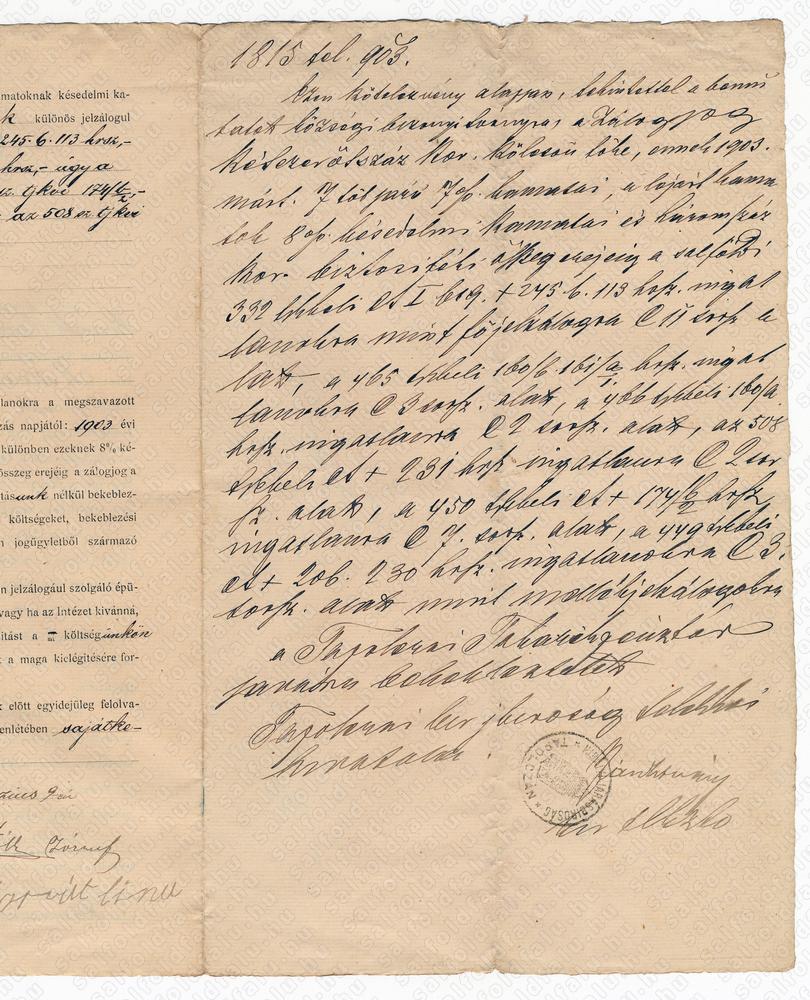 matoknak késedelmi ka-
k különös jelzálogul
245.6.113 hrsz,-
hrsz,- úgy a
gkvi 174/6/2,-
az 508 sz gkvi
lanokra a megszavazott
zás napjától: 1903 évi
különben ezeknek 8% ké-
összeg erejéig a zálogjog a
tásunk nélkül bekeblez-
költségeket, bekeblezési
n jogügyletből származó
n jelzálogául szolgáló épü-
vagy ha az Intézet kivánná,
itást a költségünkön
t a maga kielégítésére for-
k előtt egyidejüleg felolva-
enlétében sajátke-
József
1815 tel. 903.
Ezen kötelezvény alapján, tekintettel a bemu
tatott községi bizonyítványra, a zálogjog
kétszerötszáz kor. kölcsön tőke, ennek 1903.
márt. 7 től járó 7% kamatai, a lejárt kama
tok 8% késedelmi kamatai és háromszáz
kor. biztosítéki összeg erejéig a salföldi
332 tkkbeli A I 245.6.113 hrsz. ingat
lanokra mint főjelzálogra C 11 sorsz. a
latt, a 465 tkkbeli 160/b. 161/a hrsz. ingat
lanokra C 3 sorsz. alatt, a 466 tkkbeli 160/a
hrsz. ingatlanra C 2 sorsz. alatt, az 508
tkkbeli A + 231 hrsz ingatlanra C 2 sor
sz. alatt, a 450 tkkbeli A + 174/b/2 hrsz
ingatlanra C 7. sorsz. alatt, a 449 tkkbeli
A + 206. 230 hrsz. ingatlanokra C 3.
sorsz. alatt mint mellékjelzálogokra
a Tapolczai Takarékpénztár
javára bekebleztetett
Tapolczai kir jbiróság telekkvi
hivatala.